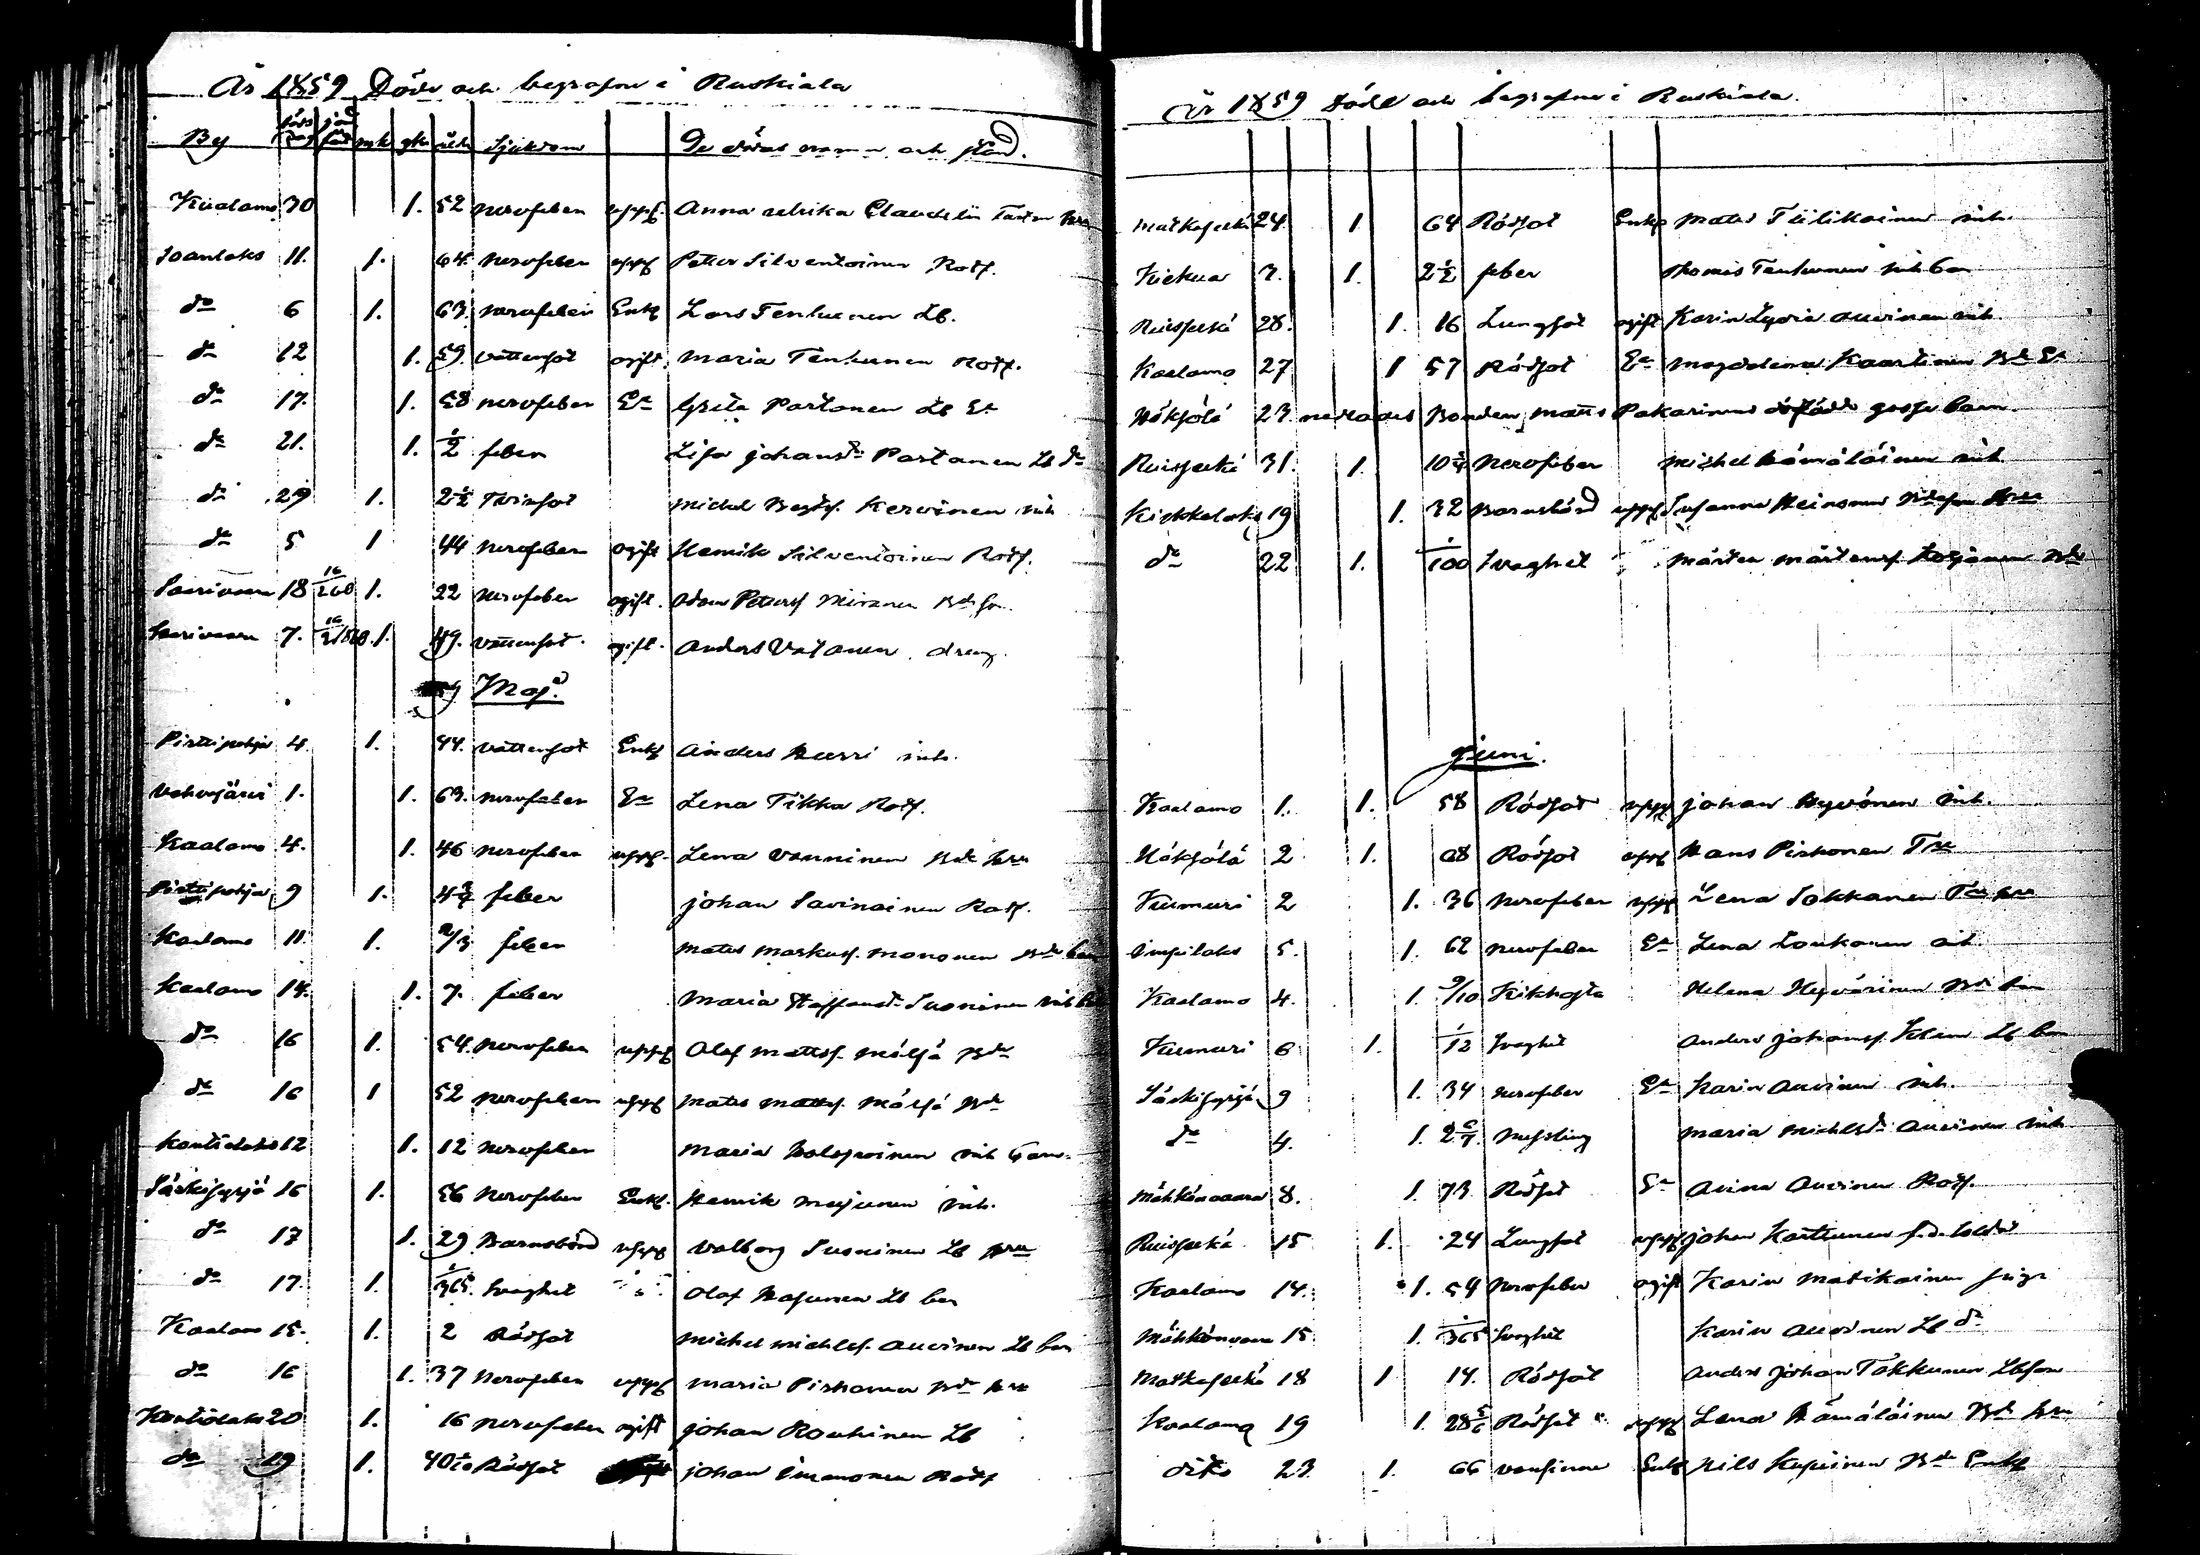 År 1859 Döde och begrafne i Ruskiala
By mk qk åld Sjukdom De dödas namn och stånd.
Kaalamo 30 1. 52 nervfeber uppg. Anna Ulrika Claudelin
Joenlaks 11. 1. 64. Nervfeber uppg Petter Silventoinen Rotf.
do 6 1. 63. nervfeber Enkl Lars Tenhunen Lb.
do 12 1. 59. vattensot ogift. Maria Tenhunen Rotf.
do 17. 1. 58 nervfeber Ea Greta Partanen Lb Ea
do 21. 1. 1/2 feber Lisa Johansdr Partanen Lb dr
do 29 1. 2 1/2 Tvinsot Michel Kervinen inh
do 5 1 44 nervfeber ogift Henrik Silventoinen Rotf.
Saarivaara 18 1. 22 nervfeber ogift. Adam Petersf Mironen Bdeson
Saarivaara 7. 1. 49. vattensot ogift. Anders Vatanen dreng.
Maj
Pirttipohja 4. 1. 44. vattensot Enkl Anders Hurri inh.
Vahvajärvi 1. 1. 63. nervfeber Ea Lena Tikka Rotf.
Kaalamo 4. 1. 46 nervfeber uppg. Lena Vanninen Bde hru
Pirttipohja 9 1. 4 3/4 feber Johan Savinainen Rotf.
Kaalamo 11. 1. 2/3 feber Mats Markusf. Mononen Bde barn
Kaalamo 14. 1. 7. feber Maria Staffansdr Suoninen inh
do 16 1. 54. nervfeber uppg Olof Mattsf. Mölsä Bde
do 16 1 52 nervfeber uppg Mats Mattsf. Mölsä Bde
Kontiolaks 12 1. 12 nervfeber Maria Holopainen inh barn
Särkisyrjä 16 1. 56 Nervfeber Enkl. Henrik Mujunen inh.
do 13 1. 29 Barnsbörd uppg Valborg Suoninen Lb hru
do 17. 1. 1/365 Svaghet Olof Lb barn
Kaalamo 15. 1. 2 Rödsot Michel Michelsf. Auvinen Lb barn
do 16 1. 37 Nervfeber uppg Maria Pirhonen Bde hru
Kontiolaks 20 1. 16 nervfeber ogift Johan Rouhinen Lb
do 19 1. 40 Rödsot Johan Immonen Rotf
År 1859 Döde och begrafne i Ruskiala.
Matkaselkä 24. 1 64 Rödsot Enkl Mats Tiilikainen inh.
7. 1. 2 1/2 feber Thomas Tenhunen inh barn
Ruisselkä 28. 1. 16 Lungsot ogift Karin Lydia Auvinen inh.
Kaalamo 27 1 57 Rödsot Ea Magdalena Kaartinen Bde Ea
Höksölä 23. Bonden Matts Pakarinens dödfödde gosse barn.
Ruisselkä 31. 1. 10 3/4 Nervfeber Michel Hämäläinen inh
19 1. 32 Barnsbörd uppg Susanna Heinonen
do 22 1. 1/100 Svaghet Mårten Mårtensf
Juni.
Kaalamo 1. 1. 58 Rödsot uppg Johan Hyvönen inh.
Höksölä 2 1. 68 Rödsot uppg Hans Pirhonen
Kumuri 2 1. 36 Nervfeber uppg Lena Sokkanen
Impilaks 5. 1. 62 nervfeber Ea Lena Loukonen inh
Kaalamo 4. 1. 9/10 Kikhosta Helena Hyvärinen Bde barn
Kumuri 6 1. 1/12 Svaghet Anders Johansf. Lb barn
Särkisyrjä 9 1. 34 nervfeber Ea Karin Auvinen inh.
do 4. 1. 2 Messling Maria Michelsdr Auvinen inh
Möhkönvaara 8. 1. 73 Rödsot Ea Anna Auvinen Rotf.
Ruisselkä 15 1. 24 Lungsot uppg Johan Karttunen f.d. soldat
Kaalamo 14. 1. 54 Nervfeber ogift Karin Matikainen piga
Möhkönvaara 15 1. 1/365 Svaghet Karin Auvinen Lb dr
Matkaselkä 18 1 14. Rödsot Anders Johan Tokkunen Lbson
Kaalamo 19 1. 28 5/6 Rödsot uppg Lena Hämäläinen Bde hru
dito 23. 1. 66 Enkl Nils Kupiinen Bde Enkl